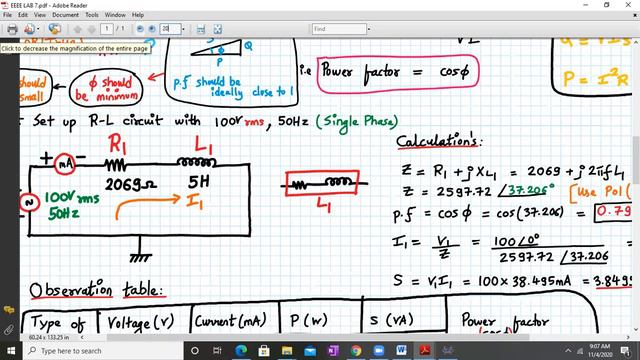 EEEE LAB 7.pdf - Adobe Reader
File Edit View Window Help
1 / 1
20
Find
Click to decrease the magnification of the entire page
should
small
φ should
be minimum
P
Q
p.f should be
ideally close to 1
i.e
Power factor = cosφ
P = I²R
Set up R-L circuit with 100V rms, 50Hz (Single Phase)
R1
L1
+ mA -
2069Ω
5H
~
100V rms
50Hz
I1
L1
Calculation's:
Z = R1 + jXL1 = 2069 + j2πfL1
Z = 2597.72 /37.206°
[Use Pol(
p.f = cosφ = cos(37.206) = 0.79
I1 = V1/Z = 100∠0° / 2597.72 /37.206 =
S = V1I1 = 100 × 38.495mA = 3.849
Observation table:
Type of
Voltage (V)
Current (mA)
P (W)
S (VA)
Power factor
60.24 x 133.25 in
Type here to search
9:07 AM
11/4/2020